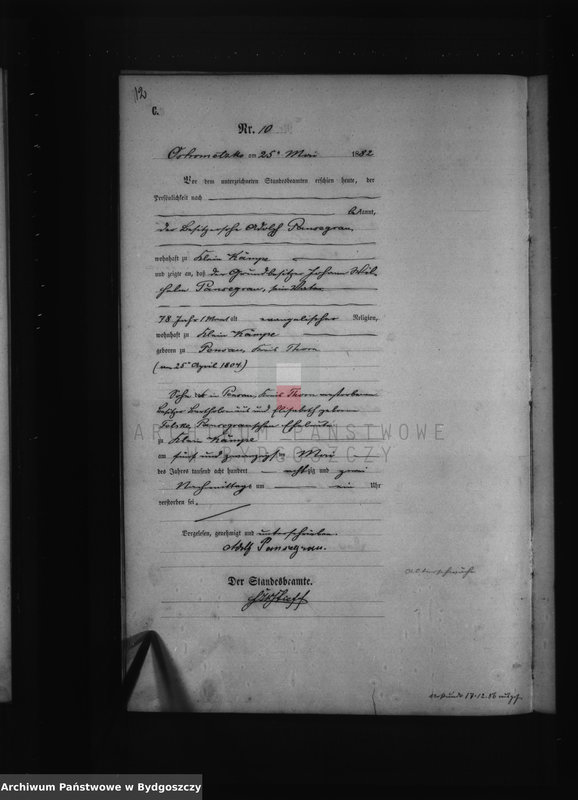 12
C.
Nr. 10
Ostrometzko am 25ⁿ Mai 1882
Vor dem unterzeichneten Standesbeamten erschien heute, der
Persönlichkeit nach
bekannt,
der Besitzersohn Adolph Pansegrau,
wohnhaft zu Klein Kämpe
und zeigte an, daß der Grundbesitzer Johann Wil-
helm Pansegrau, sein Vater
78 Jahr 1 Monat alt evangelischer Religion,
wohnhaft zu Klein Kämpe
geboren zu Pensau, Kreis Thorn
(am 25ⁿ April 1804.)
Sohn der in Pensau, Kreis Thorn verstorbenen
Besitzer Bartholomäus und Elisabeth geborene
Pansegrauschen Eheleute
zu Klein Kämpe
am fünf und zwanzigsten Mai
des Jahres tausend acht hundert achtzig und zwei
Nachmittags um ein Uhr
verstorben sei.
Vorgelesen, genehmigt und unterschrieben.
Adolf Pansegrau.
Der Standesbeamte.
Altersschwäche
17.12.86
ARCHIWUM PAŃSTWOWE
W BYDGOSZCZY
Archiwum Państwowe w Bydgoszczy